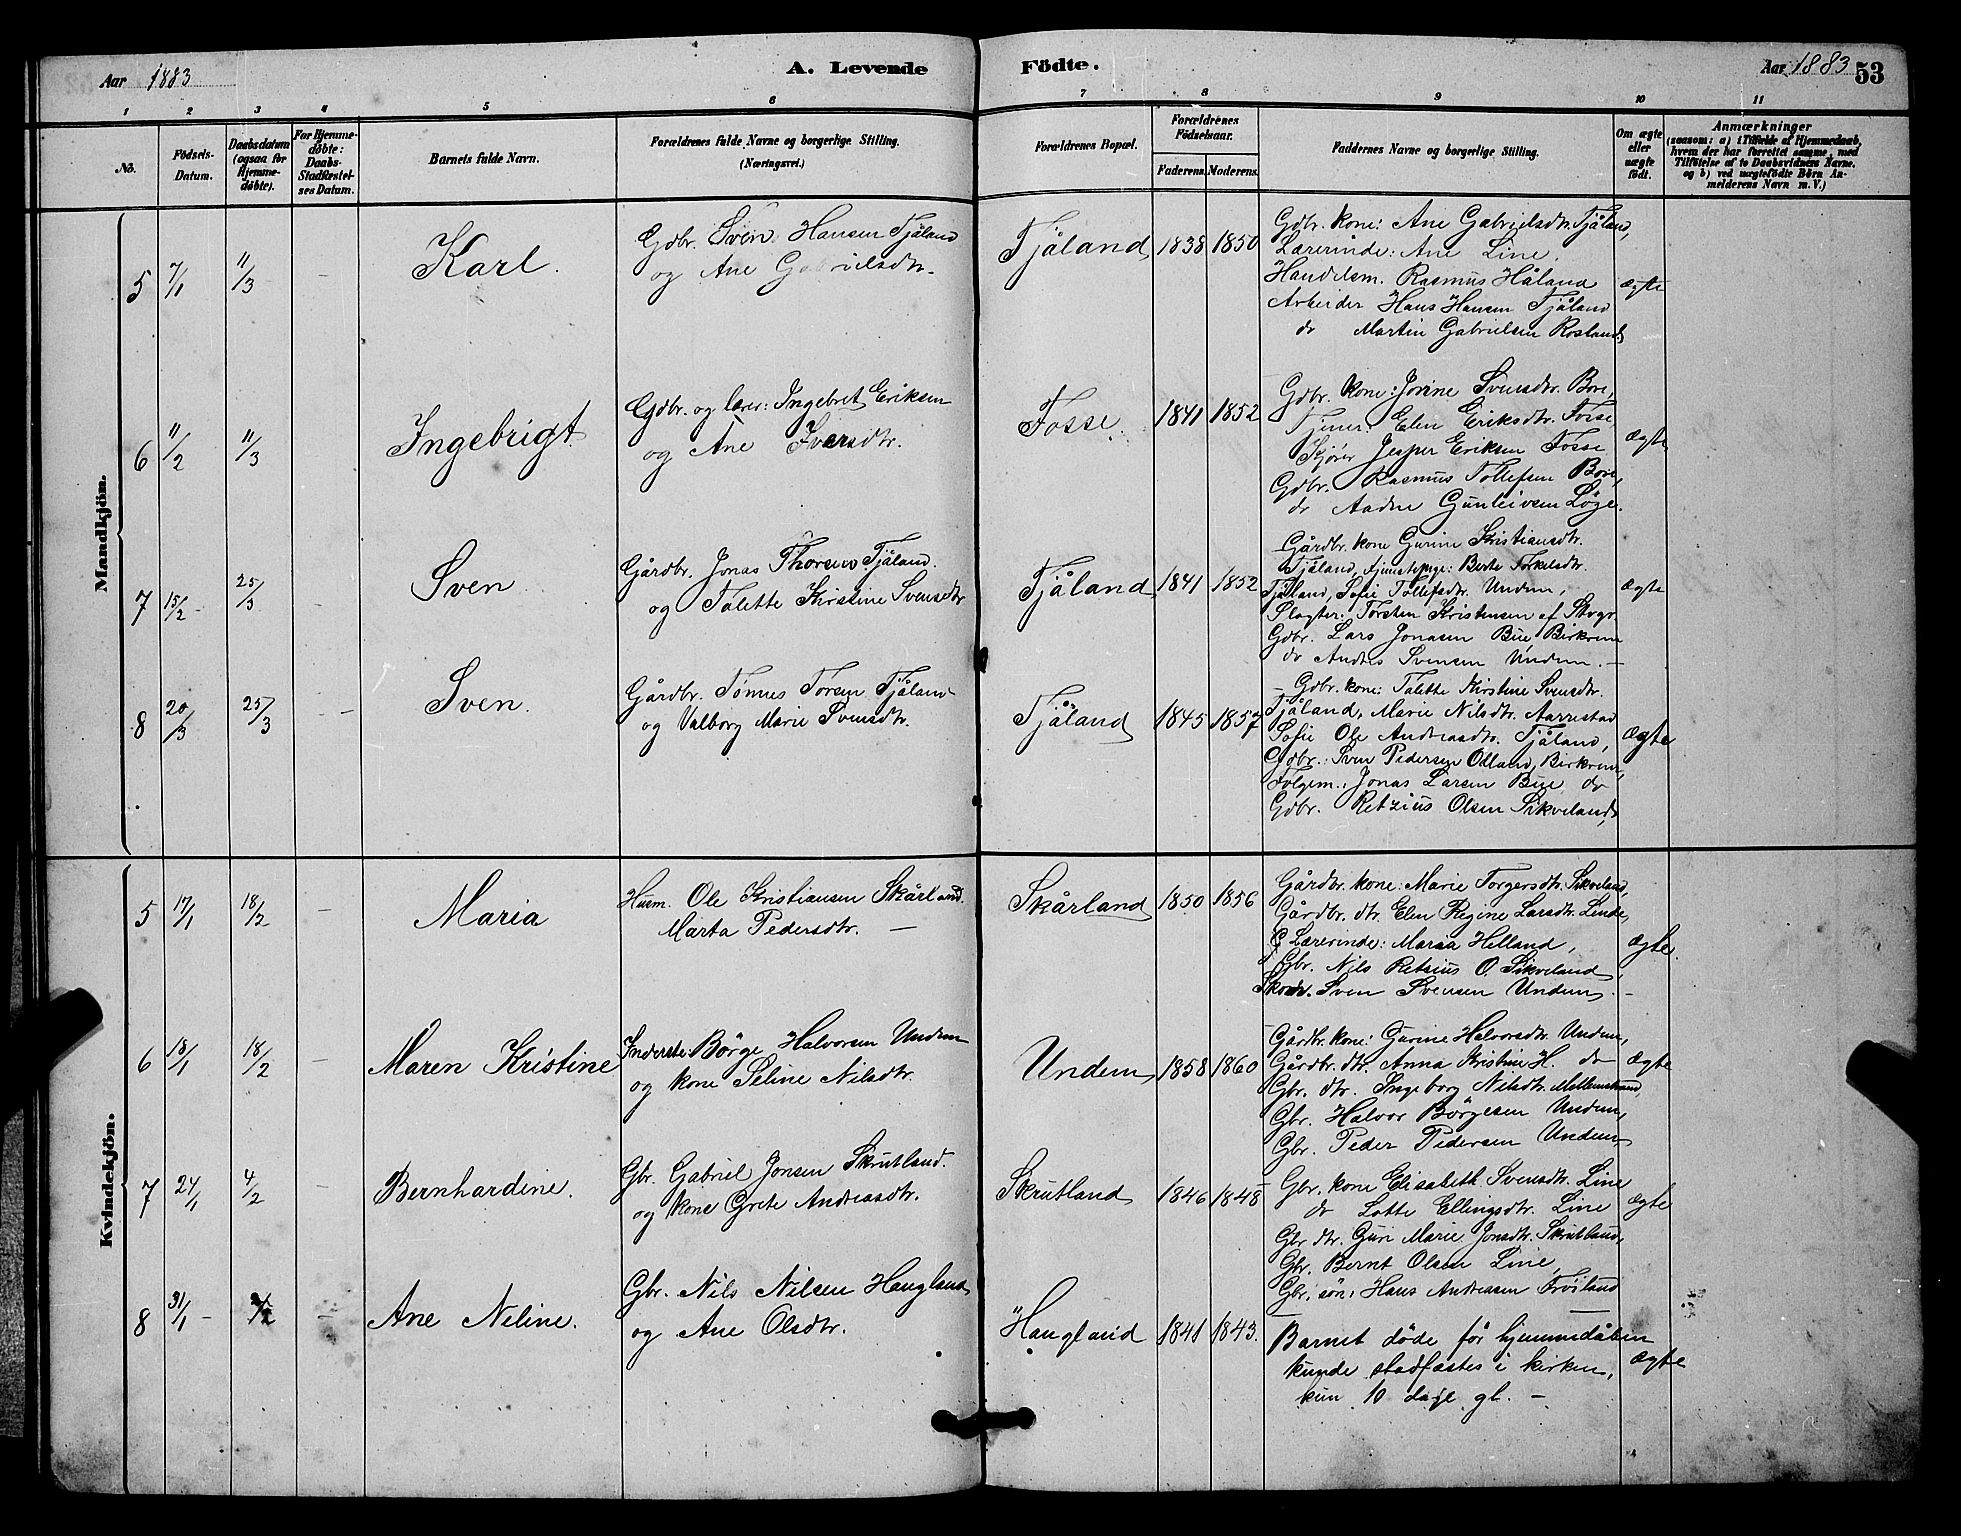 Aar 1883
A. Levende
Födte.
Aar 1883
53
1 2 3 4 5 6 7 8 9 10 11
No.
Födsels-
Datum.
Daabsdatum
(ogsaa for
Hjemme-
döbte).
For Hjemme-
döbte:
Daabs-
Stadfæstel-
ses Datum.
Barnets fulde Navn.
Forældrenes fulde Navne og borgerlige Stilling.
(Næringsvei.)
Forældrenes Bopæl.
Forældrenes
Födselsaar.
Faderens. Moderens.
Faddernes Navne og borgerlige Stilling.
Om ægte
eller
uægte
födt.
Anmærkninger
(saasom: a) i Tilfælde af Hjemmedaab,
hvem der har forrettet samme, med
Tilföielse af to Daabsvidners Navne.
og b) ved uægtefödte Börn An-
melderens Navn m. V.)
Mandkjön.
5 7/1 11/3 - Karl.
Gdbr. Sven Hansen Tjåland
og Ane Gabrielsdtr.
Tjåland 1838 1850
Gdbr. kone: Ane Gabrielsdtr. Tjåland,
Lærerinde: Ane Line,
Handelsm. Rasmus Håland
Arbeider Hans Hansen Tjåland
do Martin Gabrielsen Rosland
ægte
6 11/2 11/3 Ingebrigt
Gdbr. og lærer: Ingebret Eriksen
og Ane Iversdtr.
Fosse. 1841 1852
Gdbr. kone: Jorine Svensdtr. Bore,
Tjener: Elen Eriksdtr. Fosse
Jesper Eriksen Fosse
Gdbr. Rasmus Tollefsen Bore,
do Aadne Gunleivsen Løge.
ægte
7 15/2 - 25/3 - Sven
Gårdbr. Jonas Thorsen Tjåland.
og Talette Kirstine Svensdtr
Tjåland 1841 1852
Gårdbr. kone Gurine Kristiansdtr.
Tjåland, Tjenstepige: Berte Torkelsdtr.
Tjåland, Sofie Tollefsdtr. Undem,
Slagter: Torsten Kristensen af Stvgr.
Gdbr. Lars Jonasen Bue Birkrem
do Andres Svensen Undem. -
ægte
8 20/3 25/3 - Sven.
Gårdbr. Tønnes Torsen Tjåland
og Valborg Marie Svensdtr.
Tjåland 1845 1857
Gdbr. kone: Talette Kirstine Svensdtr.
Tjåland, Marie Nilsdtr. Aarrestad
Sofie Ole Andreasdtr. Tjåland,
Gdbr.: Sven Pedersen Ødland, Birkrem,
Folgem.: Jonas Larsen Bue do
Gdbr. Retzius Olsen Sikveland,
ægte
Kvindekjön.
5 17/1 18/2 - Maria
Husm. Ole Kristiansen Skårland.
Marta Pedersdtr. -
Skårland 1850 1856
Gårdbr. kone: Marie Torgersdtr. Sikveland,
Gårdbr. dtr. Elen Regine Larsdtr. Linde,
Lærerinde: Maria Helland,
Gbr. Nils Retzius O. Sikveland,
Sven Svensen Undem. -
ægte.
6 18/1 18/2 - Maren Kristine
Inderste: Börge Halvorsen Undem
og kone Seline Nilsdtr.
Undem 1858 1860
Gårdbr. kone: Gurine Halvorsdtr. Undem,
Gårdbr. dtr. Anna Kristine H. do
Gbr. dtr. Ingeborg Nilsdtr. Mellemstrand,
Gbr. Halvor Börgesen Undem,
Gbr. Peder Pedersen Undem
ægte
7 24/1 4/2 - Bernhardine.
Gbr. Gabriel Jonsen Skrutland.
og kone Grete Andreasdtr.
Skrutland 1846 1848
Gbr. kone Elisabeth Svensdtr. Line
do Lotte Ellingsdtr. Line
Gbr dtr. Guri Marie Jonsdtr. Skrutland,
Gbr. Bernt Olsen Line,
Gbr. søn: Hans Andreasen Frøiland
ægte
8 31/1 - /2 - Ane Neline.
Gbr. Nils Nilsen Haugland
og Ane Olsdtr.
Haugland 1841 1843.
Barnet døde før hjemmedåben
kunde stadfæstes i kirken,
kun 10 dage gl. -
ægte